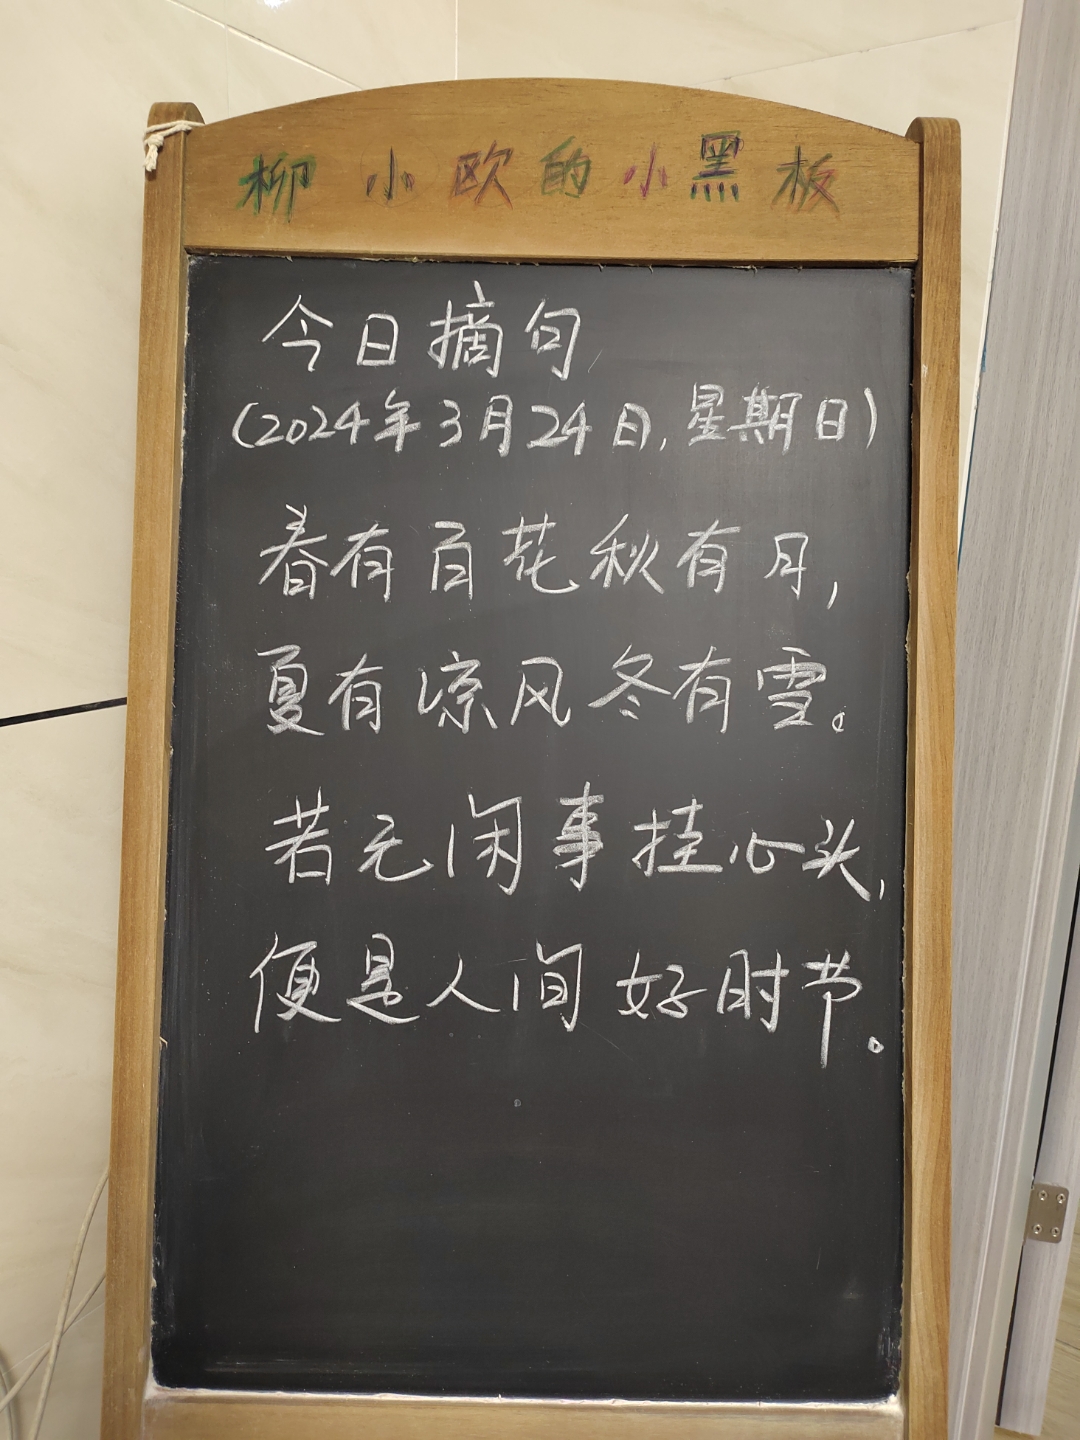 柳小欧的小黑板
今日摘句
(2024年3月24日,星期日)
春有百花秋有月,
夏有凉风冬有雪。
若无闲事挂心头,
便是人间好时节。